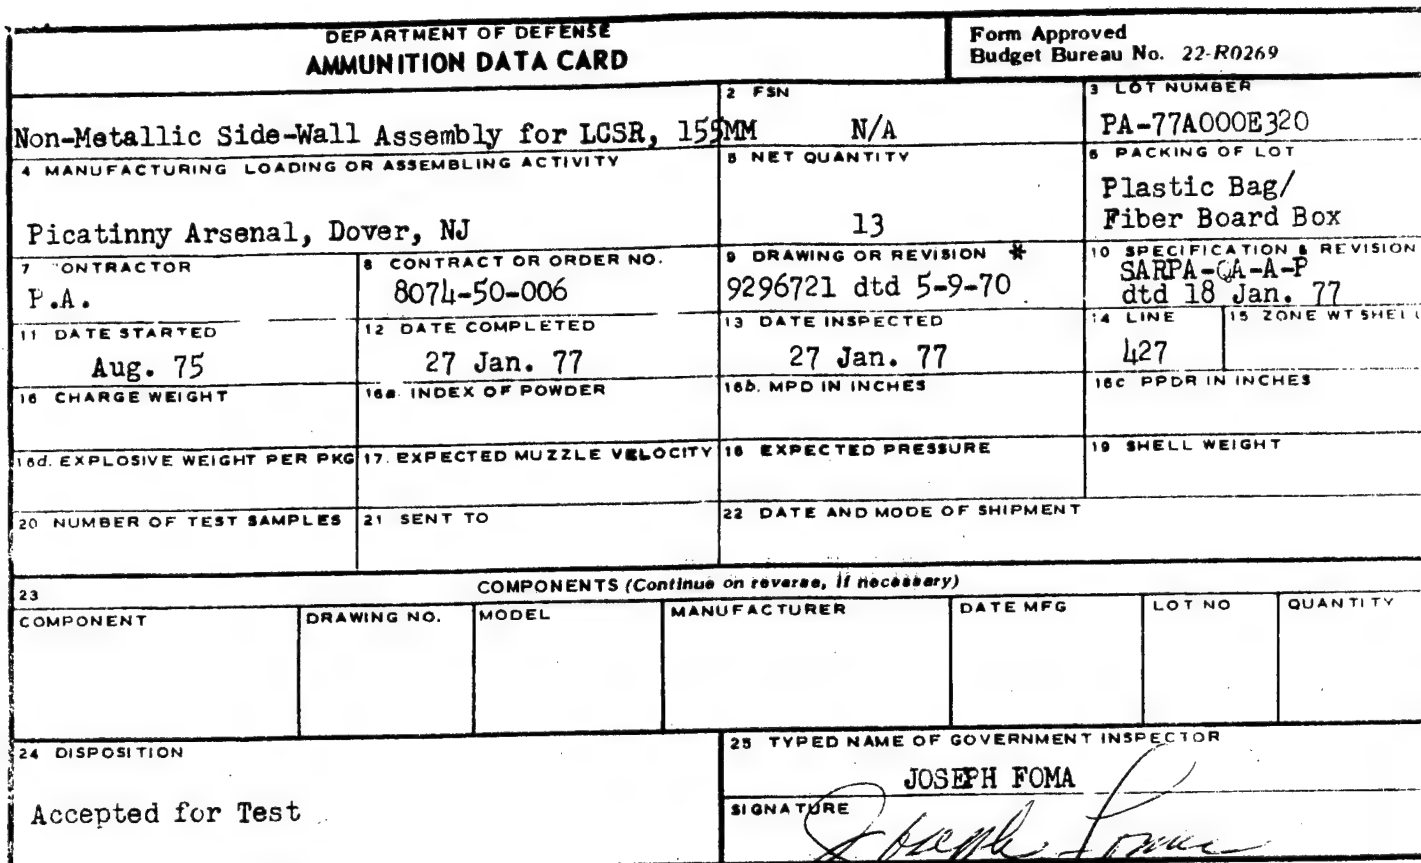 DEPARTMENT OF DEFENSE
AMMUNITION DATA CARD
Form Approved
Budget Bureau No. 22-R0269
Non-Metallic Side-Wall Assembly for LCSR, 155MM
2 FSN
N/A
3 LOT NUMBER
PA-77A000E320
4 MANUFACTURING LOADING OR ASSEMBLING ACTIVITY
Picatinny Arsenal, Dover, NJ
5 NET QUANTITY
13
6 PACKING OF LOT
Plastic Bag/
Fiber Board Box
7 CONTRACTOR
P.A.
8 CONTRACT OR ORDER NO.
8074-50-006
9 DRAWING OR REVISION *
9296721 dtd 5-9-70
10 SPECIFICATION & REVISION
SARPA-QA-A-P
dtd 18 Jan. 77
11 DATE STARTED
Aug. 75
12 DATE COMPLETED
27 Jan. 77
13 DATE INSPECTED
27 Jan. 77
14 LINE
427
15 ZONE WT SHELL
16 CHARGE WEIGHT
16a. INDEX OF POWDER
16b. MPD IN INCHES
16c PPDR IN INCHES
16d. EXPLOSIVE WEIGHT PER PKG
17. EXPECTED MUZZLE VELOCITY
18 EXPECTED PRESSURE
19 SHELL WEIGHT
20 NUMBER OF TEST SAMPLES
21 SENT TO
22 DATE AND MODE OF SHIPMENT
23
COMPONENTS (Continue on reverse, if necessary)
COMPONENT
DRAWING NO.
MODEL
MANUFACTURER
DATE MFG
LOT NO
QUANTITY
24 DISPOSITION
Accepted for Test
25 TYPED NAME OF GOVERNMENT INSPECTOR
JOSEPH FOMA
SIGNATURE
Joseph Foma